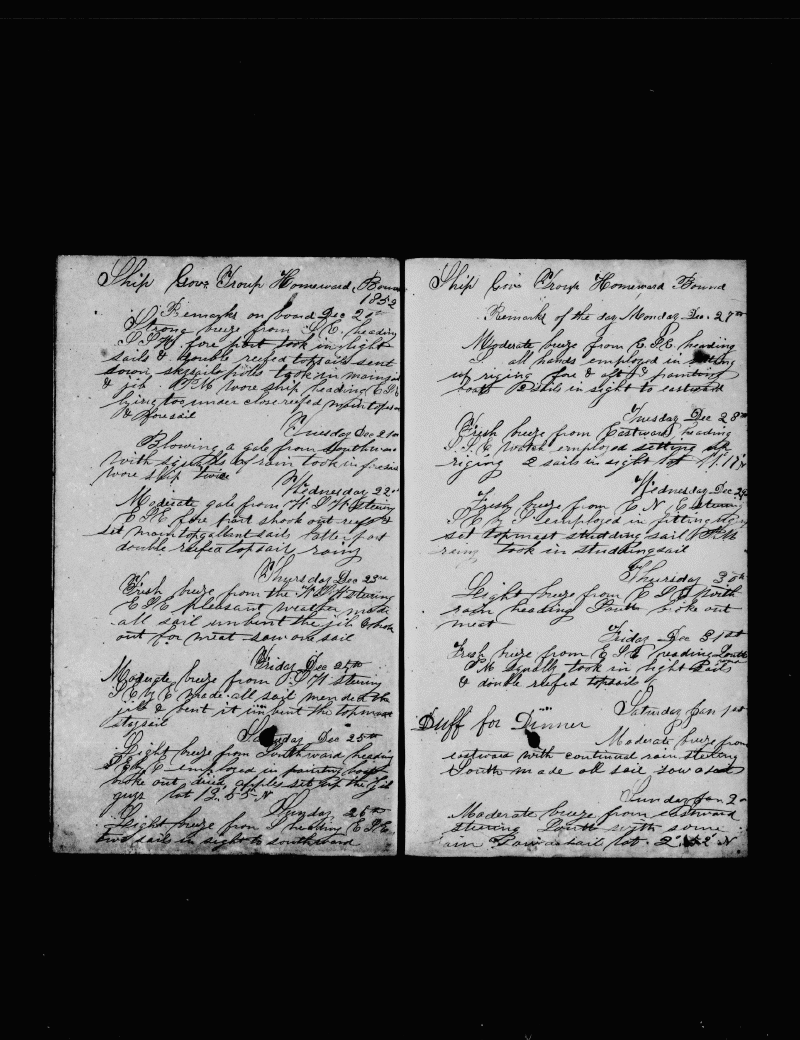 Ship Gov. Troup Homeward Bound
1852
Remarks on board Dec 20th
Strong breeze from S.E. heading
S.S.W. fore part took in light
sails & double reefed topsails sent
down skysail poles took in mainsail
& jib P.M. wore ship heading E.
under close reefed main topsail
& foresail
Tuesday Dec 21st
Blowing a gale from
with squalls by rain took in foresail
wore ship twice
Wednesday 22nd
Moderate gale from W.S.W. steering
E.S.E. fore part shook out reefs &
set main topgallant sails latter part
double reefed topsail rainy
Thursday Dec 23rd
Fresh breeze from the W.S.W. steering
E.S.E. pleasant weather made
all sail unbent the jib & broke
out for meat saw one sail
Friday Dec 24th
Moderate breeze from S.S.W. steering
S.E. by E. made all sail mended the
jib & bent it unbent the topmast
staysail
Saturday Dec 25th
Light breeze from Southward heading
employed in painting boats
broke out dried apples set up the jib
guys lat
Sunday 26th
Light breeze from S. heading E.S.E.
two sails in sight to southward
Ship Gov. Troup Homeward Bound
Remarks of the day Monday Dec. 27th
Moderate breeze from E.S.E. heading
S. all hands employed in setting
up riging fore & aft & painting
boats 2 sails in sight to eastward
Tuesday Dec 28th
Fresh breeze from Eastward heading
S.S.E. watch employed setting up
riging 2 sails in sight lat
Wednesday Dec 29
Fresh breeze from E.N.E. steering
S.E. by S. employed in fitting
set topmast studding sail P.M.
rainy took in studdingsail
Thursday 30th
Light breeze from E.S.E. with
rain heading South broke out
meat
Friday Dec 31st
Fresh breeze from E.S.E. heading South
P.M. squally took in light sails
& double reefed topsails
Saturday Jan 1st
Duff for Dinner
Moderate breeze from
eastward with continual rain steering
South made all sail saw a sail
Sunday Jan 2
Moderate breeze from eastward
steering South with some
rain saw a sail lat.